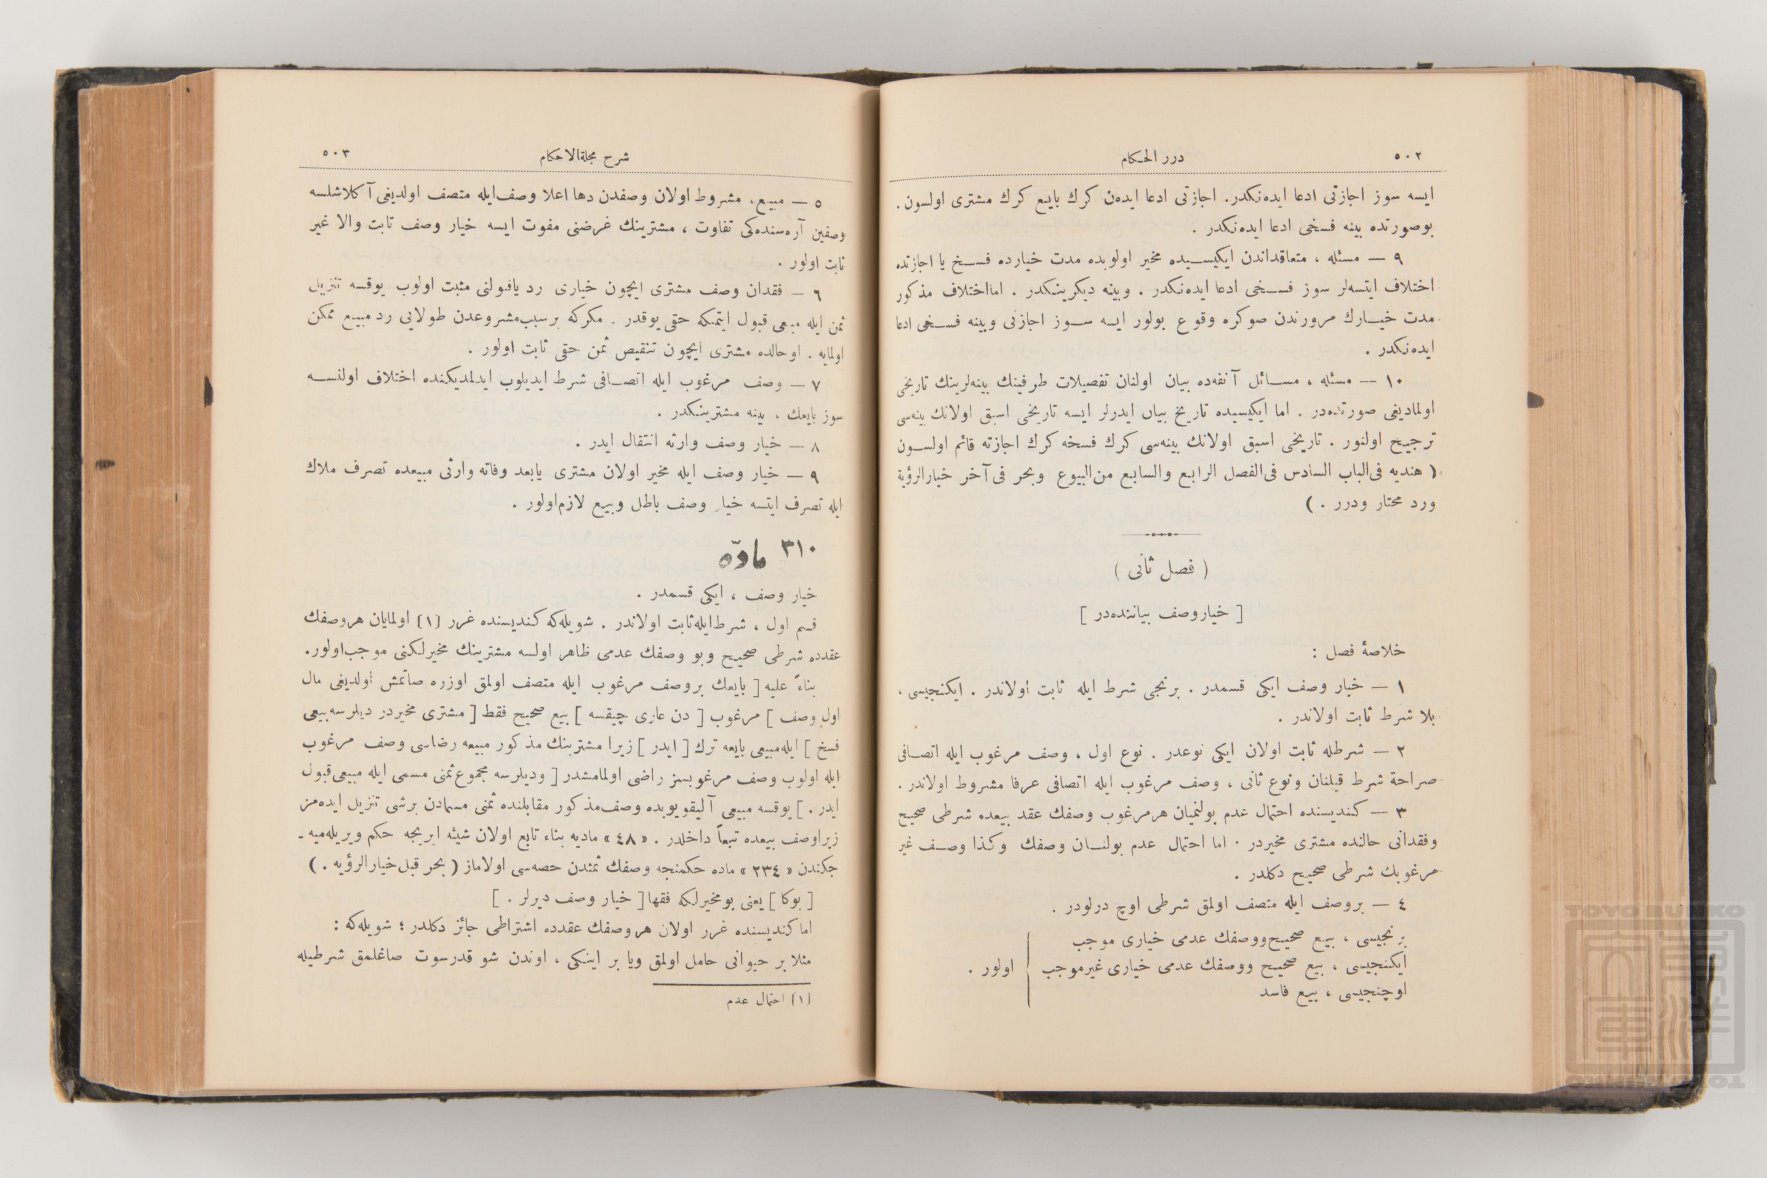 ٥٠٢
درر الحكام
ايسه سوز اجازتى ادعا ايده‌نكدر. اجازتى ادعا ايده‌ن كرك بايع كرك مشترى اولسون.
بوصورتده بينه فسخى ادعا ايده‌نكدر .
٩ — مسئله ، متعاقداندن ايكيسيده مخير اولوبده مدت خيارده فسخ يا اجازتده
اختلاف ايتسه‌لر سوز فسخى ادعا ايده‌نكدر . وبينه ديكرينكدر . امااختلاف مذكور
مدت خيارك مرورندن صوكره وقوع بولور ايسه سوز اجازتى وبينه فسخى ادعا
ايده‌نكدر .
١٠ — مسئله ، مسائل آنفه‌ده بيان اولنان تفصيلات طرفينك بينه‌لرينك تاريخى
اولماديغى صورتده‌در . اما ايكيسيده تاريخ بيان ايدرلر ايسه تاريخى اسبق اولانك بينه‌سى
ترجيح اولنور . تاريخى اسبق اولانك بينه‌سى كرك فسخه كرك اجازته قائم اولسون
( هنديه فى‌الباب السادس فى‌الفصل الرابع والسابع من‌البيوع وبحر فى آخر خيارالرؤية
ورد محتار ودرر . )
( فصل ثانى )
[ خياروصف بياننده‌در ]
خلاصهٔ فصل :
١ — خيار وصف ايكى قسمدر . برنجى شرط ايله ثابت اولاندر . ايكنجيسى ،
بلا شرط ثابت اولاندر .
٢ — شرطله ثابت اولان ايكى نوعدر . نوع اول ، وصف مرغوب ايله اتصافى
صراحة شرط قيلنان ونوع ثانى ، وصف مرغوب ايله اتصافى عرفا مشروط اولاندر .
٣ — كنديسنده احتمال عدم بولنميان هرمرغوب وصفك عقد بيعده شرطى صحيح
وفقدانى حالنده مشترى مخيردر . اما احتمال عدم بولنان وصفك وكذا وصف غير
مرغوبك شرطى صحيح دكلدر .
٤ — بروصف ايله متصف اولمق شرطى اوچ درلودر .
برنجيسى ، بيع صحيح‌ووصفك عدمى خيارى موجب
ايكنجيسى ، بيع صحيح ووصفك عدمى خيارى غيرموجب اولور .
اوچنجيسى ، بيع فاسد
شرح مجلةالاحكام
٥٠٣
٥ — مبيع، مشروط اولان وصفدن دها اعلا وصف‌ايله متصف اولديغى آكلاشلسه
وصفين آره‌سنده‌كى تفاوت ، مشترينك غرضنى مفوت ايسه خيار وصف ثابت والا غير
ثابت اولور .
٦ — فقدان وصف مشترى ايچون خيارى رد ياقبولنى مثبت اولوب يوقسه تنزيل
ثمن ايله مبيعى قبول ايتمكه حقى يوقدر . مكركه برسبب‌مشروعدن طولايى رد مبيع ممكن
اولمايه . اوحالده مشترى ايچون تنقيص ثمن حقى ثابت اولور .
٧ — وصف مرغوب ايله اتصافى شرط ايديلوب ايدلمديكنده اختلاف اولنسه
سوز بايعك ، بينه مشترينكدر .
٨ — خيار وصف وارثه انتقال ايدر .
٩ — خيار وصف ايله مخير اولان مشترى يابعد وفاته وارثى مبيعده تصرف ملاك
ايله تصرف ايتسه خيار وصف باطل وبيع لازم‌اولور .
٣١٠ مادّه
خيار وصف ، ايكى قسمدر .
قسم اول ، شرط‌ايله‌ثابت اولاندر . شويله‌كه كنديسنده غرر (١) اولمايان هروصفك
عقدده شرطى صحيح وبو وصفك عدمى ظاهر اولسه مشترينك مخيرلكنى موجب‌اولور.
بناءً عليه [ بايعك بروصف مرغوب ايله متصف اولمق اوزره صاتمش اولديغى مال
اول وصف ] مرغوب [ دن عارى چيقسه ] بيع صحيح فقط [ مشترى مخيردر ديلرسه‌بيعى
فسخ ] ايله‌مبيعى بايعه ترك [ ايدر ] زيرا مشترينك مذكور مبيعه رضاسى وصف مرغوب
ايله اولوب وصف مرغوبسز راضى اولمامشدر [ وديلرسه مجموع‌ثمنى مسمى ايله مبيعى‌قبول
ايدر . ] يوقسه مبيعى آليقويوبده وصف‌مذكور مقابلنده ثمنى مسمادن برشى تنزيل ايده‌مز
زيراوصف بيعده تبعاً داخلدر . « ٤٨ » ماديه بناء تابع اولان شيئه ايريجه حكم ويريله‌ميه ـ
جكندن « ٢٣٤ » ماده حكمنجه وصفك ثمندن حصه‌سى اولاماز ( بحر قبل‌خيارالرؤيه . )
[ بوكا ] يعنى بومخيرلكه فقها [ خيار وصف ديرلر . ]
اماكنديسنده غرر اولان هروصفك عقدده اشتراطى جائز دكلدر ؛ شويله‌كه :
مثلا بر حيوانى حامل اولمق ويا بر اينكى ، اوندن شو قدرسوت صاغلمق شرطيله
(١) احتمال عدم
TOYO BUNKO